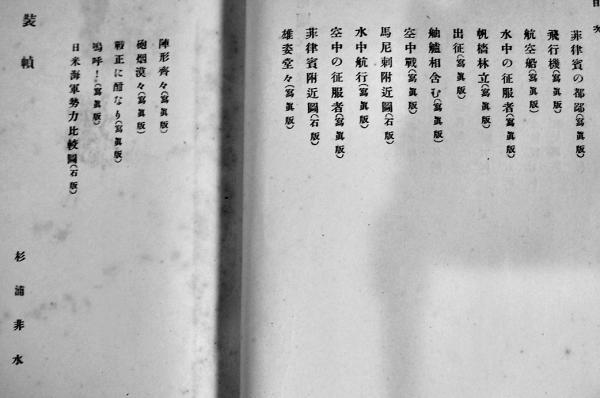 目次
菲律賓の都鄙(寫眞版)
飛行機(寫眞版)
航空船(寫眞版)
水中の征服者(寫眞版)
帆檣林立(寫眞版)
出征(寫眞版)
舳艫相含む(寫眞版)
空中戰(寫眞版)
馬尼剌附近圖(石版)
水中航行(寫眞版)
空中の征服者(寫眞版)
菲律賓附近圖(石版)
雄姿堂々(寫眞版)
陣形齊々(寫眞版)
砲烟漠々(寫眞版)
戰正に酣なり(寫眞版)
嗚呼!(寫眞版)
日米海軍勢力比較圖(石版)
裝幀 杉浦非水